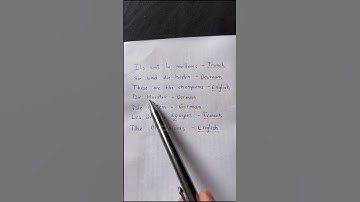 Ils sont les meilleurs - French
Sie sind die besten - German
These are the champions - English
Die Meister - German
Die - German
Les équipes - French
The - English